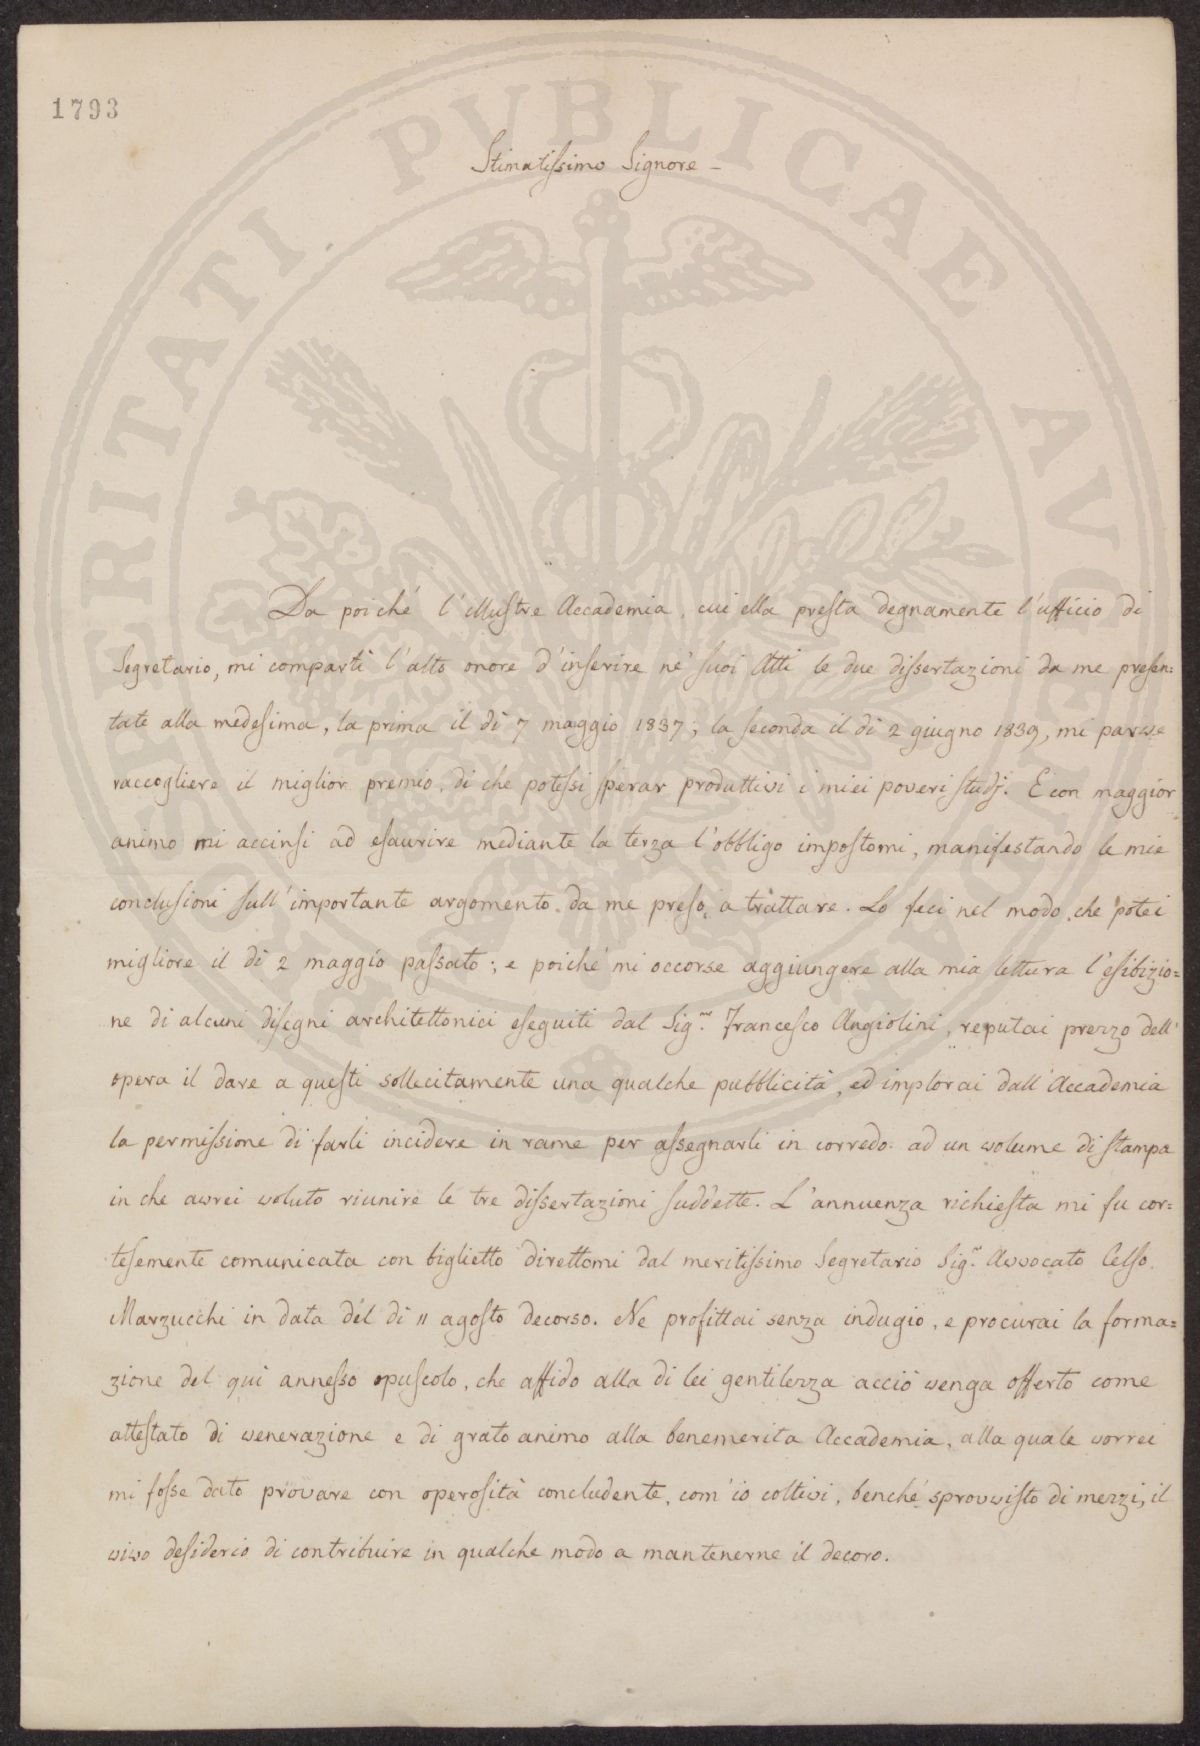 1793
Stimatissimo Signore –
Da poiché l'illustre Accademia, cui ella presta degnamente l'ufficio di
Segretario, mi compartì l'alto onore d'inserire ne' suoi Atti le due dissertazioni da me presen=
tate alla medesima, la prima il dì 7 maggio 1837; la seconda il dì 2 giugno 1839, mi parve
raccogliere il miglior premio, di che potessi sperar produttivi i miei poveri studj. E con maggior
animo mi accinsi ad esaurire mediante la terza l'obbligo impostomi, manifestando le mie
conclusioni sull'importante argomento da me preso a trattare. Lo feci nel modo che potei
migliore il dì 2 maggio passato; e poiché mi occorse aggiungere alla mia lettura l'esibizio=
ne di alcuni disegni architettonici eseguiti dal Sig.r Francesco Angiolini, reputai prezzo dell'
opera il dare a questi sollecitamente una qualche pubblicità, ed implorai dall'Accademia
la permissione di farli incidere in rame per assegnarli in corredo ad un volume di stampa
in che avrei voluto riunire le tre dissertazioni suddette. L'annuenza richiesta mi fu cor=
tesemente comunicata con biglietto direttomi dal meritissimo Segretario Sig.r Avvocato Celso
Marzucchi in data del dì 11 agosto decorso. Ne profittai senza indugio, e procurai la forma=
zione del quì annesso opuscolo, che affido alla di lei gentilezza acciò venga offerto come
attestato di venerazione e di grato animo alla benemerita Accademia, alla quale vorrei
mi fosse dato provare con operosità concludente, com'io coltivi, benché sprovvisto di mezzi, il
vivo desiderio di contribuire in qualche modo a mantenerne il decoro.
PROSPERITATI PVBLICAE AVGENDAE